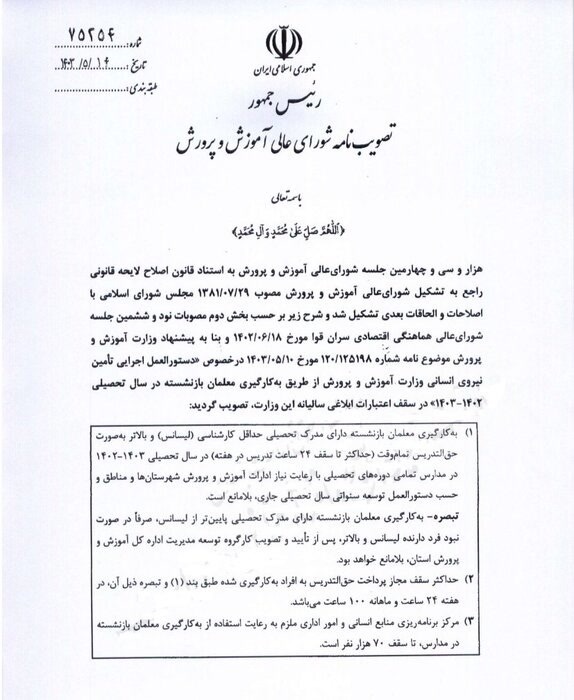 شماره: ۷۵۲۵۴
تاریخ: ۱۴۰۳/۵/۱۴
طبقه بندی:
جمهوری اسلامی ایران
رئیس جمهور
تصویب نامه شورای عالی آموزش و پرورش
باسمه تعالی
﴿اَللّهُمَّ صَلِّ عَلَىٰ مُحَمَّدٍ وَ آلِ مُحَمَّدٍ﴾
هزار و سی و چهارمین جلسه شورای‌عالی آموزش و پرورش به استناد قانون اصلاح لایحه قانونی
راجع به تشکیل شورای‌عالی آموزش و پرورش مصوب ۱۳۸۱/۰۷/۲۹ مجلس شورای اسلامی با
اصلاحات و الحاقات بعدی تشکیل شد و شرح زیر بر حسب بخش دوم مصوبات نود و ششمین جلسه
شورای‌عالی هماهنگی اقتصادی سران قوا مورخ ۱۴۰۲/۰۶/۱۸ و بنا به پیشنهاد وزارت آموزش و
پرورش موضوع نامه شماره ۱۲۰/۱۲۵۱۹۸ مورخ ۱۴۰۳/۰۵/۱۰ درخصوص «دستورالعمل اجرایی تأمین
نیروی انسانی وزارت آموزش و پرورش از طریق به‌کارگیری معلمان بازنشسته در سال تحصیلی
۱۴۰۲-۱۴۰۳» در سقف اعتبارات ابلاغی سالیانه این وزارت، تصویب گردید:
۱) به‌کارگیری معلمان بازنشسته دارای مدرک تحصیلی حداقل کارشناسی (لیسانس) و بالاتر به‌صورت
حق‌التدریس تمام‌وقت (حداکثر تا سقف ۲۴ ساعت تدریس در هفته) در سال تحصیلی ۱۴۰۳-۱۴۰۲
در مدارس تمامی دوره‌های تحصیلی با رعایت نیاز ادارات آموزش و پرورش شهرستان‌ها و مناطق و
حسب دستورالعمل توسعه سنواتی سال تحصیلی جاری، بلامانع است.
تبصره- به‌کارگیری معلمان بازنشسته دارای مدرک تحصیلی پایین‌تر از لیسانس، صرفاً در صورت
نبود فرد دارنده لیسانس و بالاتر، پس از تأیید و تصویب کارگروه توسعه مدیریت اداره کل آموزش و
پرورش استان، بلامانع خواهد بود.
۲) حداکثر سقف مجاز پرداخت حق‌التدریس به افراد به‌کارگیری شده طبق بند (۱) و تبصره ذیل آن، در
هفته ۲۴ ساعت و ماهانه ۱۰۰ ساعت می‌باشد.
۳) مرکز برنامه‌ریزی منابع انسانی و امور اداری ملزم به رعایت استفاده از به‌کارگیری معلمان بازنشسته
در مدارس، تا سقف ۷۰ هزار نفر است.